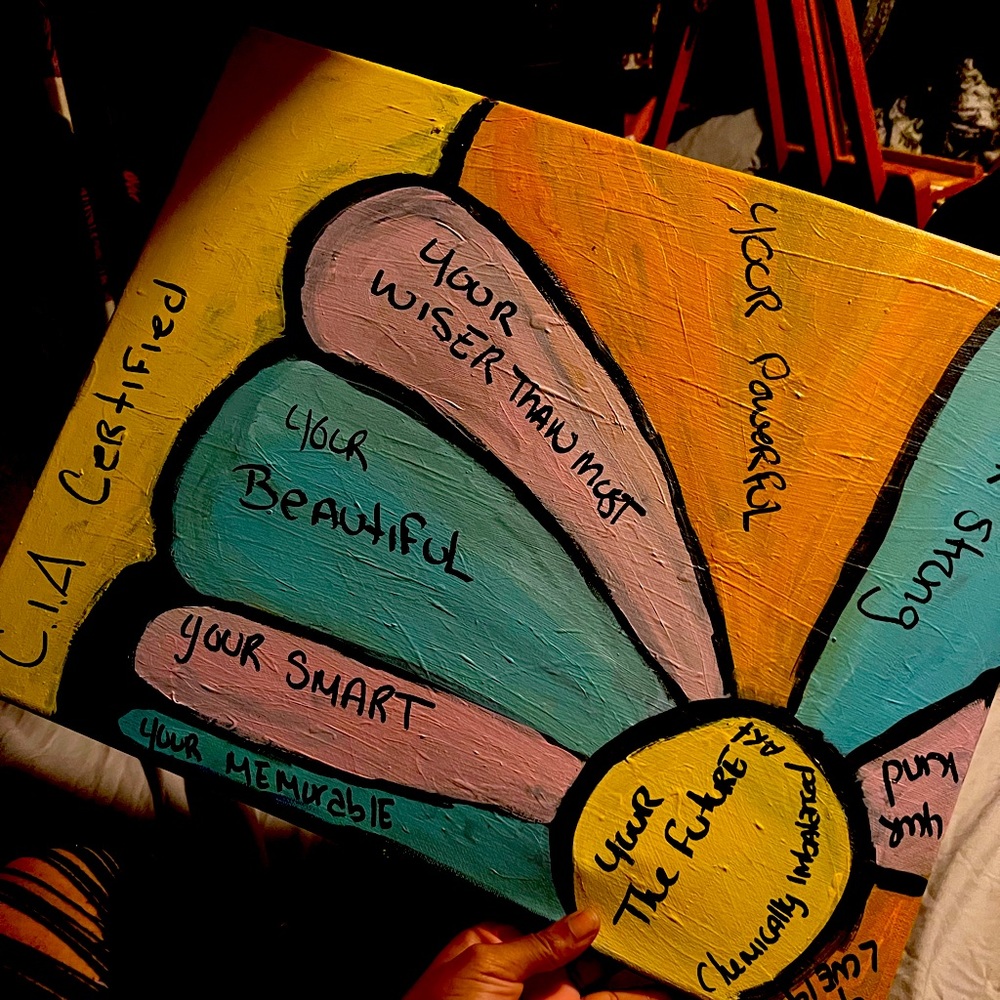 C.I.A Certified
YOUR
WISER THAN MOST
YOUR POWERFUL
YOUR
BEAUTIFUL
YOUR SMART
YOUR MEMORABLE
Strong
YOUR
Kind
YOUR
The FuturE
Chemically Imbalanced
Art